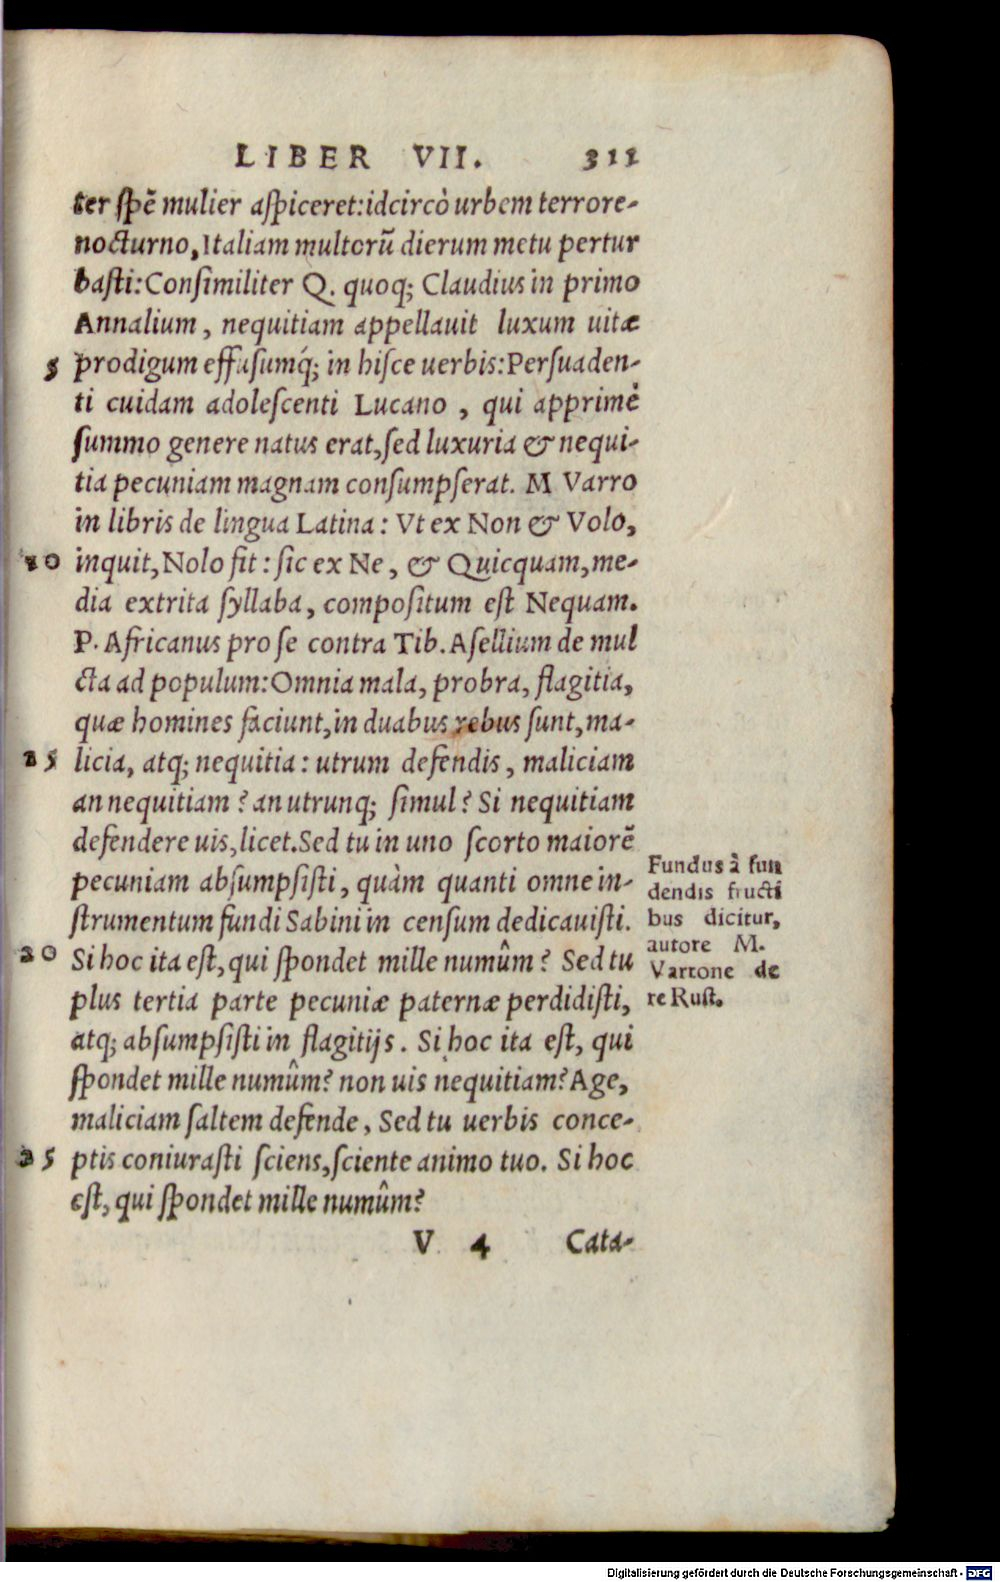 LIBER VII. 311
ter spẽ mulier aspiceret:idcircò urbem terrore-
nocturno, Italiam multorũ dierum metu pertur
basti: Consimiliter Q. quoq; Claudius in primo
Annalium, nequitiam appellauit luxum uitæ
5 prodigum effusumq́; in hisce uerbis: Persuaden-
ti cuidam adolescenti Lucano, qui apprimè
summo genere natus erat, sed luxuria & nequi-
tia pecuniam magnam consumpserat. M Varro
in libris de lingua Latina: Vt ex Non & Volo,
10 inquit, Nolo fit: sic ex Ne, & Quicquam, me-
dia extrita syllaba, compositum est Nequam.
P. Africanus pro se contra Tib. Asellium de mul
cta ad populum: Omnia mala, probra, flagitia,
quæ homines faciunt, in duabus rebus sunt, ma-
15 licia, atq; nequitia: utrum defendis, maliciam
an nequitiam? an utrunq; simul? Si nequitiam
defendere uis, licet. Sed tu in uno scorto maiorẽ
pecuniam absumpsisti, quàm quanti omne in-
strumentum fundi Sabini in censum dedicauisti.
20 Si hoc ita est, qui spondet mille numûm? Sed tu
plus tertia parte pecuniæ paternæ perdidisti,
atq; absumpsisti in flagitijs. Si hoc ita est, qui
spondet mille numûm? non uis nequitiam? Age,
maliciam saltem defende, Sed tu uerbis conce-
25 ptis coniurasti sciens, sciente animo tuo. Si hoc
est, qui spondet mille numûm?
V 4 Cata-
Fundus à fun
dendis fructi
bus dicitur,
autore M.
Varrone de
re Rust.
Digitalisierung gefördert durch die Deutsche Forschungsgemeinschaft - DFG